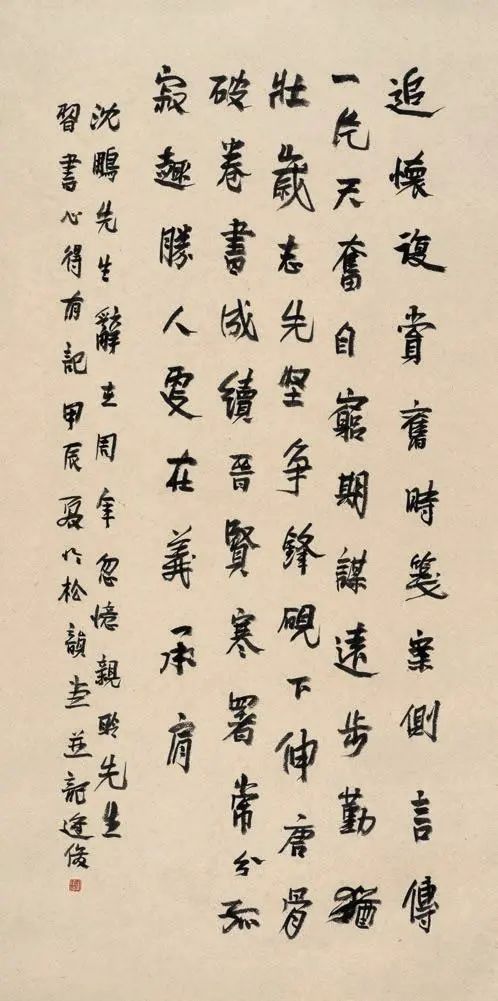 追懷復賞舊時箋案側言傳
一片天奮自窮期謀遠步勤猶
壯歲志先堅争鋒硯下伸唐骨
破卷書成續晉賢寒署常分孤
寂趣勝人更在義承肩
沈鵬先生辭世周年忽憶親聆先生
習書心得有記甲辰夏於松韻堂並記逢俊